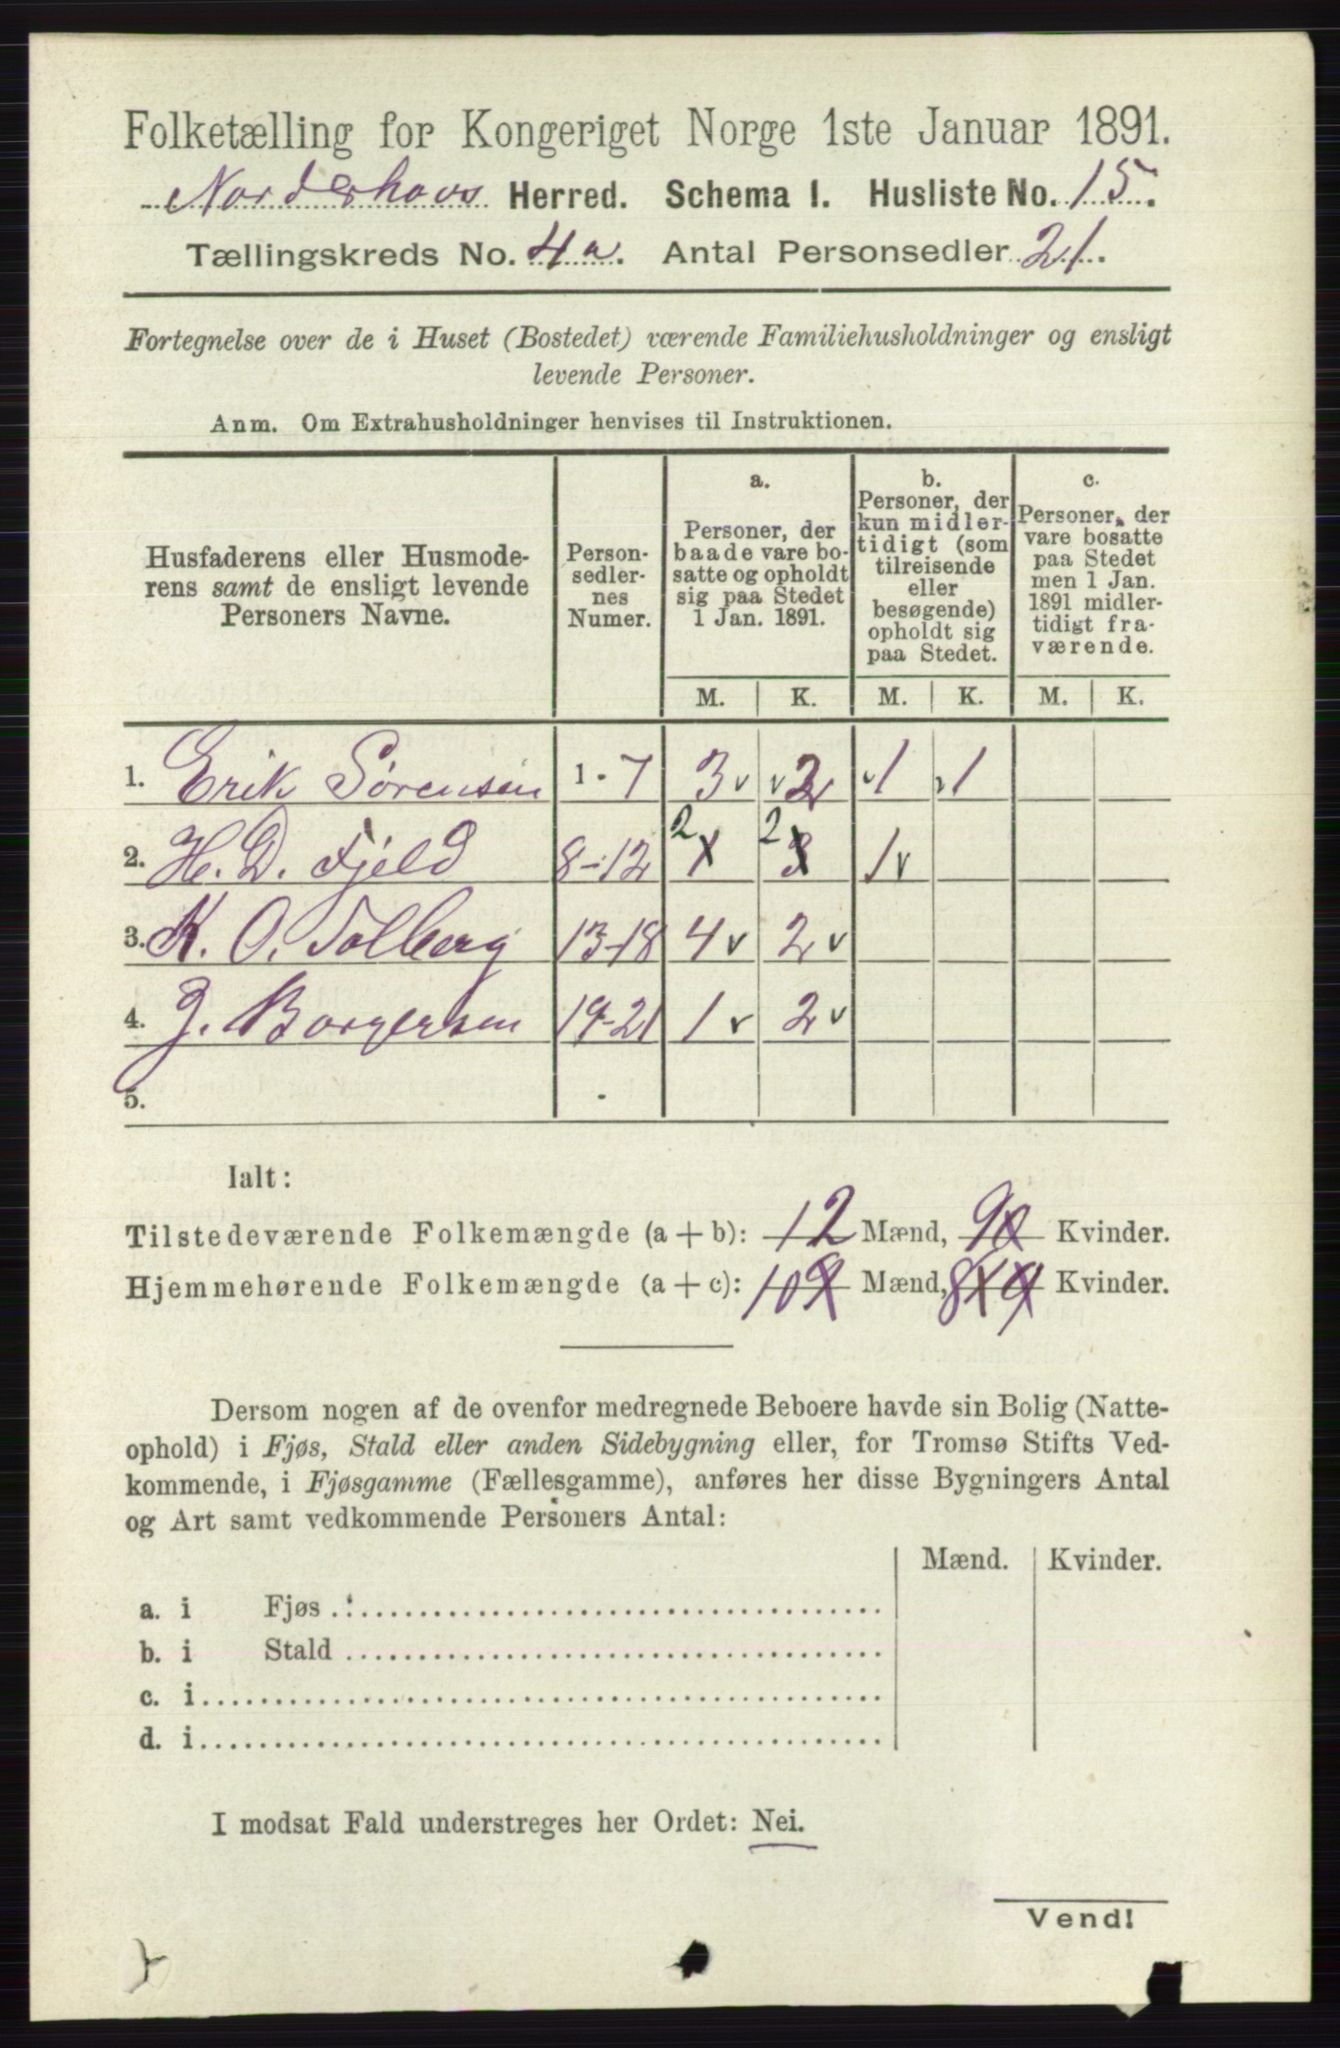 Folketælling for Kongeriget Norge 1ste Januar 1891.
Norderhovs Herred. Schema I. Husliste No. 15.
Tællingskreds No. 4a. Antal Personsedler 21.
Fortegnelse over de i Huset (Bostedet) værende Familiehusholdninger og ensligt
levende Personer.
Anm. Om Extrahusholdninger henvises til Instruktionen.
Husfaderens eller Husmode-
rens samt de ensligt levende
Personers Navne.
Person-
sedler-
nes
Numer.
a.
Personer, der
baade vare bo-
satte og opholdt
sig paa Stedet
1 Jan. 1891.
b.
Personer, der
kun midler-
tidigt (som
tilreisende
eller
besøgende)
opholdt sig
paa Stedet.
c.
Personer, der
vare bosatte
paa Stedet
men 1 Jan.
1891 midler-
tidigt fra-
værende.
M. K. M. K. M. K.
1. Erik Sørensen 1-7 3 v v 2 v 1 v 1
2. H. D. Fjeld 8-12 2 1 2 3 1 v
3. K. O. Solberg 13-18 4 v 2 v
4. J. Borgersen 19-21 1 v 2 v
5. -
Ialt:
Tilstedeværende Folkemængde (a + b): 12 Mænd, 9 Kvinder.
Hjemmehørende Folkemængde (a + c): 10 Mænd, 8 Kvinder.
Dersom nogen af de ovenfor medregnede Beboere havde sin Bolig (Natte-
ophold) i Fjøs, Stald eller anden Sidebygning eller, for Tromsø Stifts Ved-
kommende, i Fjøsgamme (Fællesgamme), anføres her disse Bygningers Antal
og Art samt vedkommende Personers Antal:
Mænd. Kvinder.
a. i Fjøs
b. i Stald
c. i
d. i
I modsat Fald understreges her Ordet: Nei.
Vend!